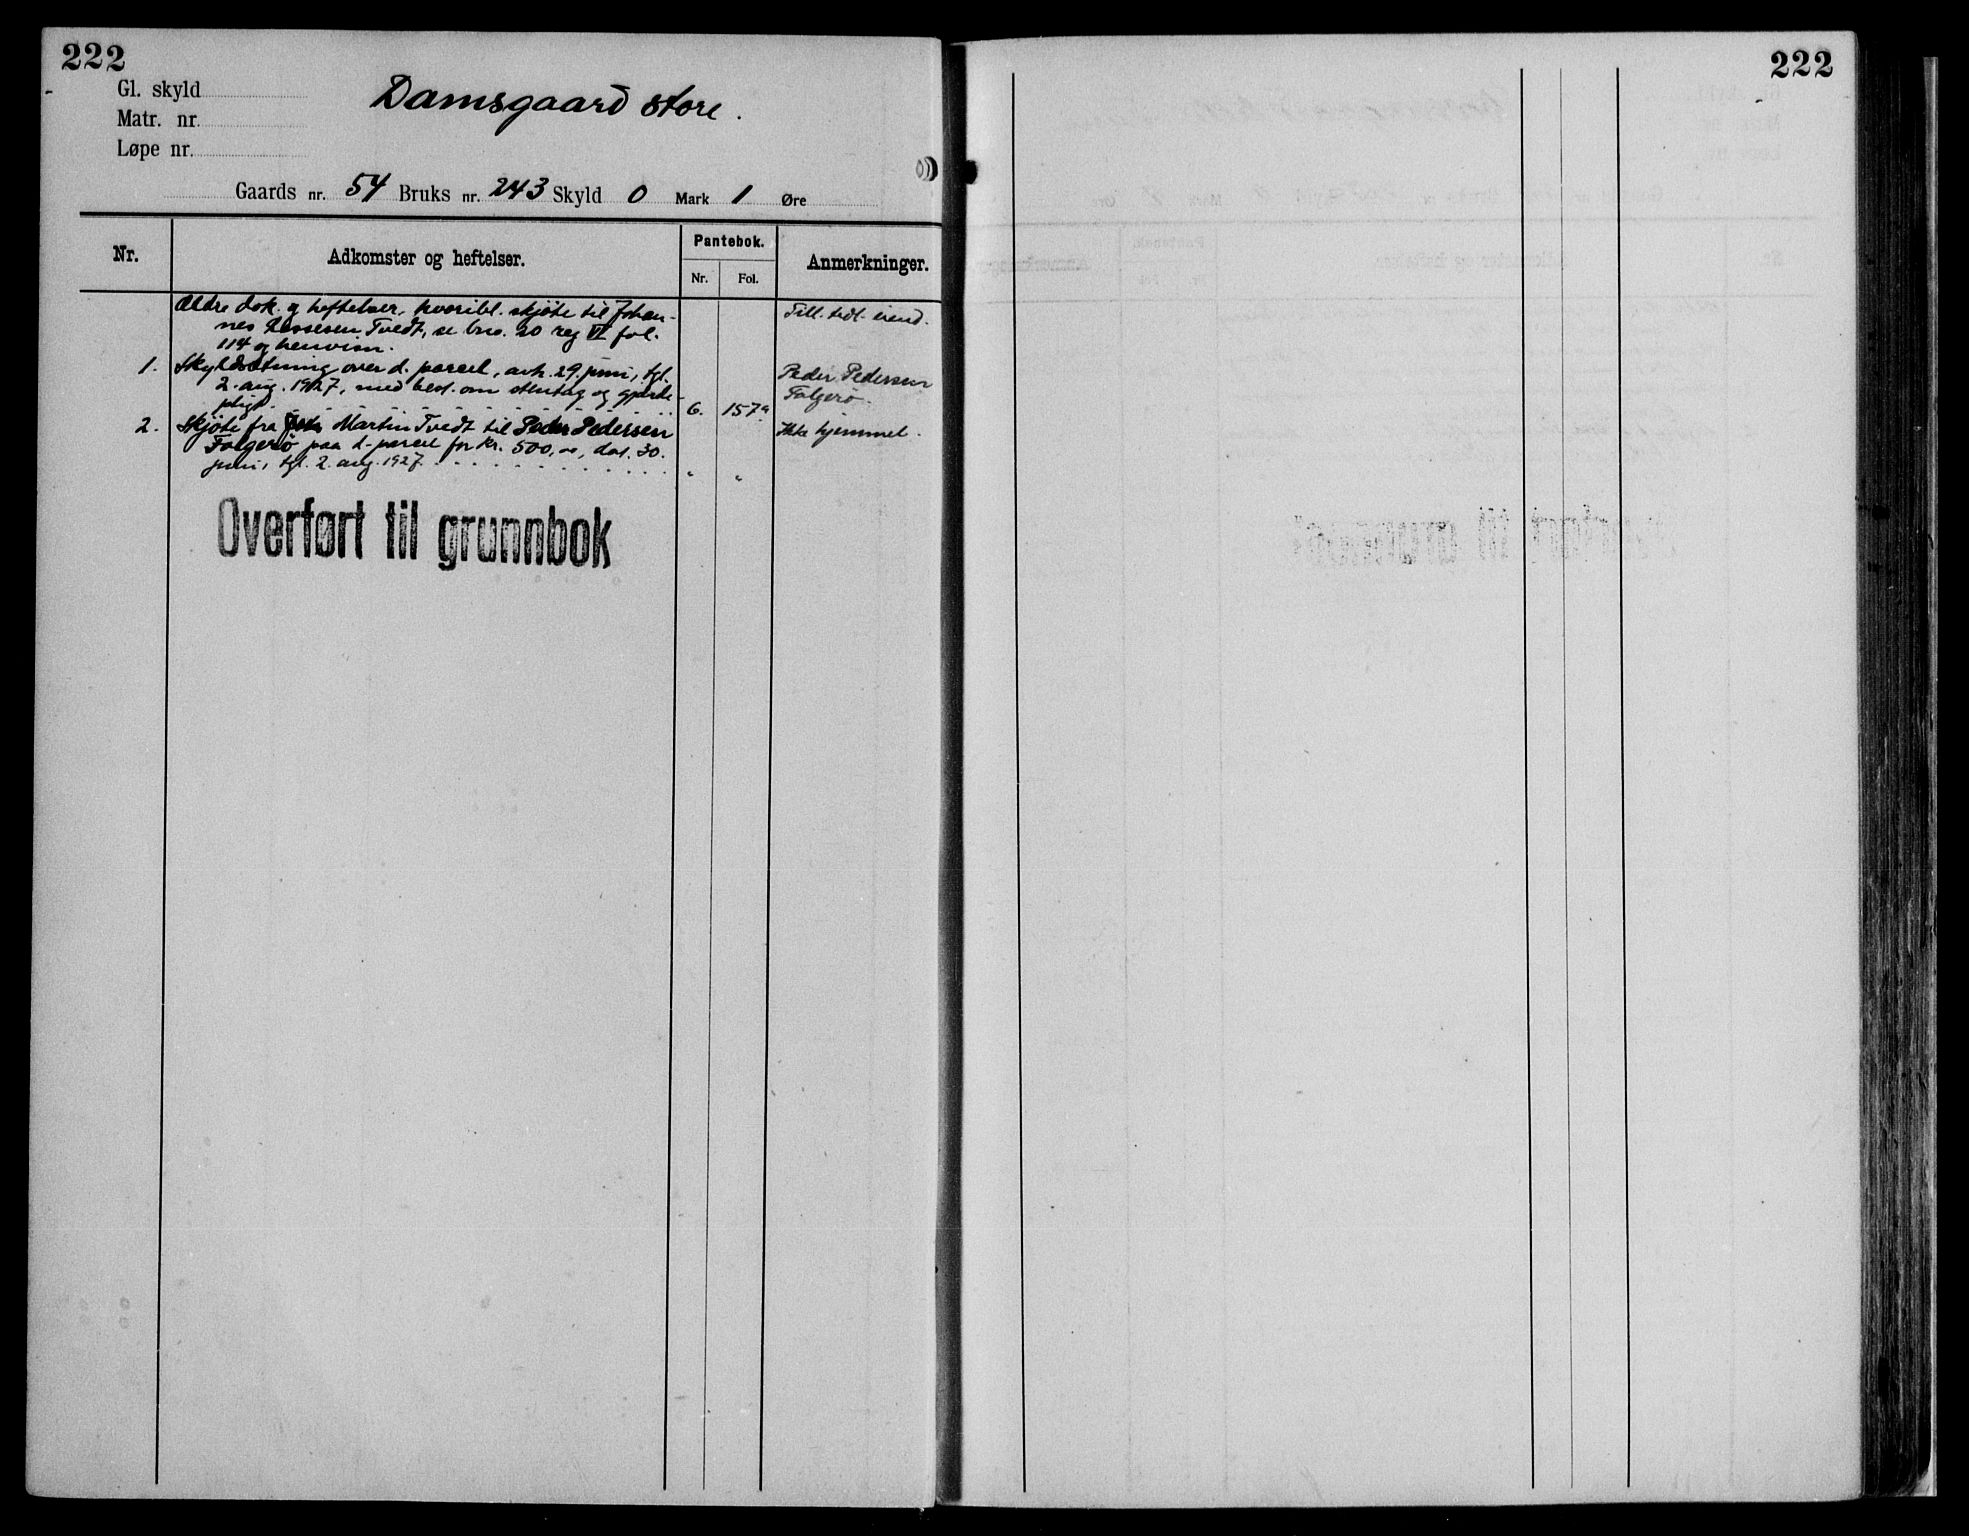 222
222
Gl. skyld
Damsgaard store.
Matr. nr.
Løpe nr.
Gaards nr. 54 Bruks nr. 243 Skyld 0 Mark 1 Øre
Nr.
Adkomster og heftelser.
Pantebok.
Nr.
Fol.
Anmerkninger.
Ældre dok. og heftelser, hvoribl. skjøte til Johan-
nes Lassesen Tvedt, se bno. 20 reg VI fol.
114 og henvisn.
Till. tidl. eiend.
1. Skyldsætning over d. parcel, avh. 29. juni, tgl.
2. aug. 1927, med best. om stentag og gjærde-
pligt. 6. 157a
Peder Pedersen
Folgerø.
2. Skjøte fra Martin Tvedt til Peder Pedersen
Folgerø paa d. parcel for kr. 500,00, dat. 30.
juni, tgl. 2. aug. 1927. " "
Ikke hjemmel.
Overført til grunnbok